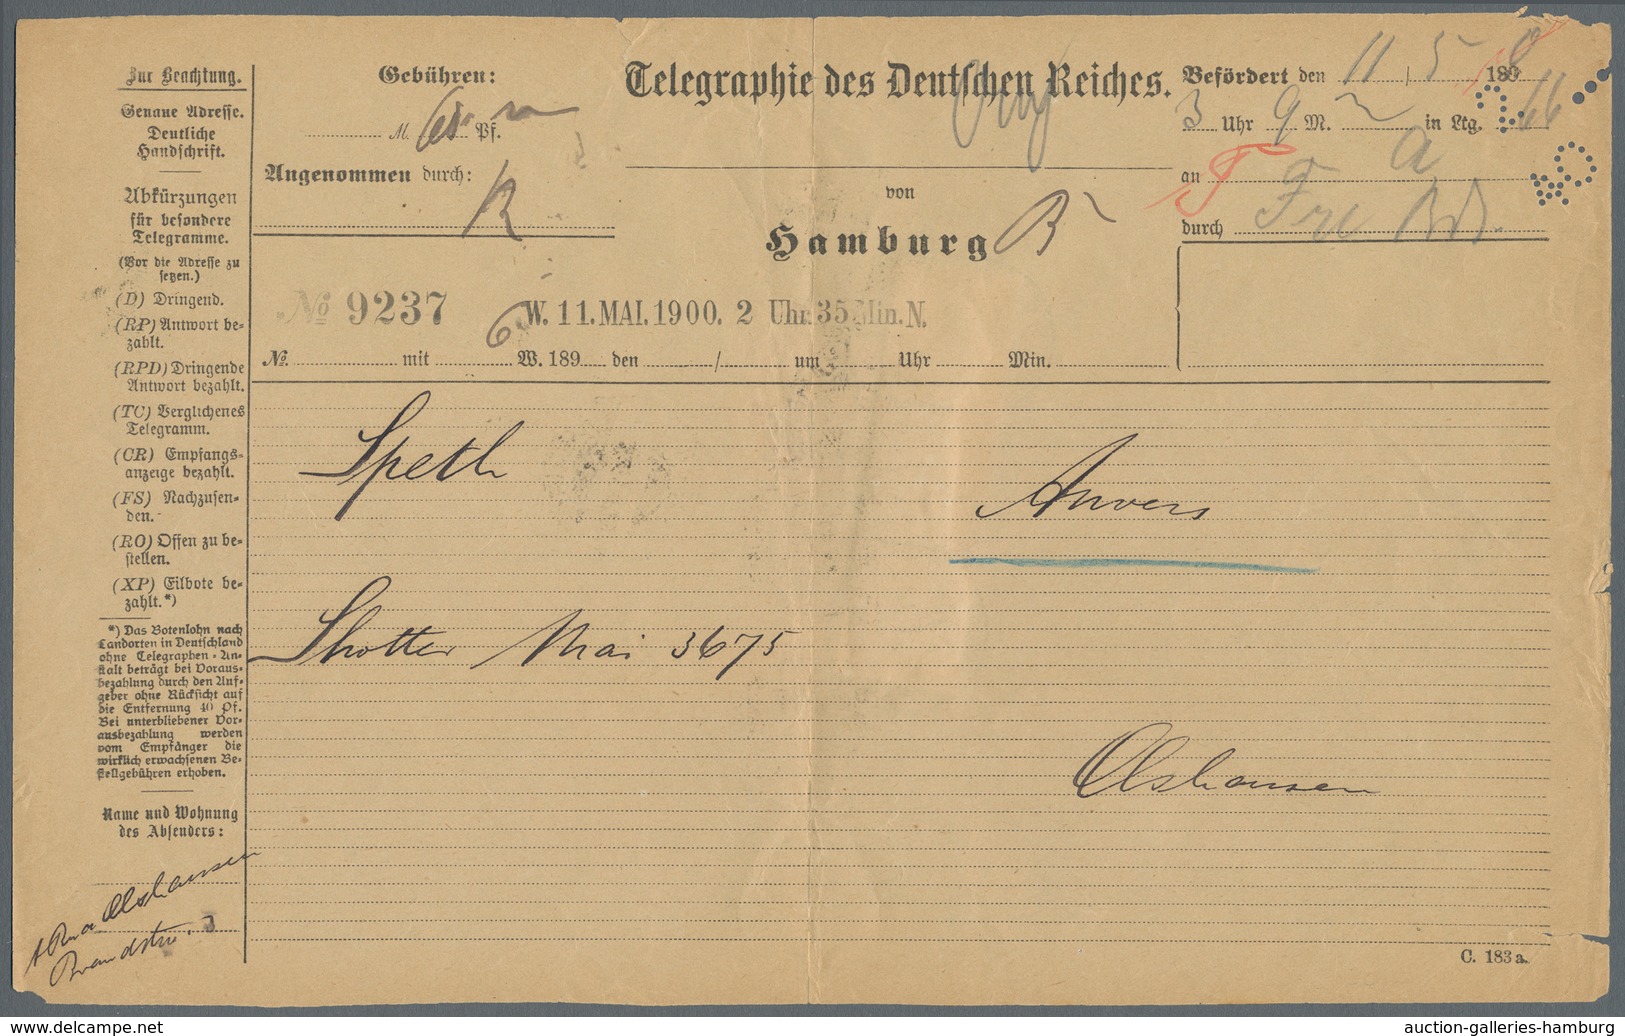 Zur Beachtung.
Genaue Adresse.
Deutliche
Handschrift.
Abkürzungen
für besondere
Telegramme.
(Vor die Adresse zu
setzen.)
(D) Dringend.
(RP) Antwort be-
zahlt.
(RPD) Dringende
Antwort bezahlt.
(TC) Verglichenes
Telegramm.
(CR) Empfangs-
anzeige bezahlt.
(FS) Nachzusen-
den.
(RO) Offen zu be-
stellen.
(XP) Eilbote be-
zahlt.*)
*) Das Botenlohn nach
Landorten in Deutschland
ohne Telegraphen-An-
stalt beträgt bei Voraus-
bezahlung durch den Auf-
geber ohne Rücksicht auf
die Entfernung 40 Pf.
Bei unterbliebener Vor-
ausbezahlung werden
vom Empfänger die
wirklich erwachsenen Be-
stellgebühren erhoben.
Name und Wohnung
des Absenders:
Olshausen
Brandstw. 3
Gebühren:
M. 65 Pf.
Angenommen durch:
R
Telegraphie des Deutschen Reiches.
von
Hamburg B
Befördert den 11/5 189
3 Uhr 9 M. in Ltg. 66
an
durch
No 9237 6 W. 11. MAI. 1900. 2 Uhr 35 Min. N.
No. mit W. 189 den / um Uhr Min.
Speth Anvers
Shotter Mai 3675
Olshausen
C. 183 a.
auction-galleries-hamburg